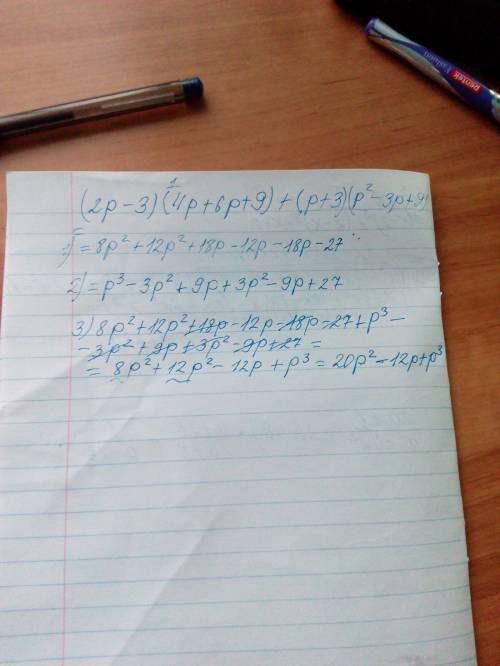 (2p-3)(4p+6p+9)+(p+3)(p²-3p+9)
1)=8p²+12p²+18p-12p-18p-27
2)=p³-3p²+9p+3p²-9p+27
3)8p²+12p²+18p-12p-18p-27+p³-
-3p²+9p+3p²-9p+27=
=8p²+12p²-12p+p³=20p²-12p+p³
pentek